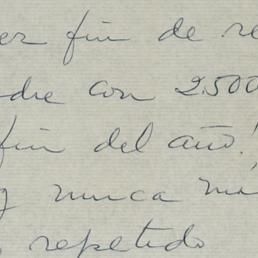 er fin de re
dre con 2.500
fin del año!
y nunca ma
repetido